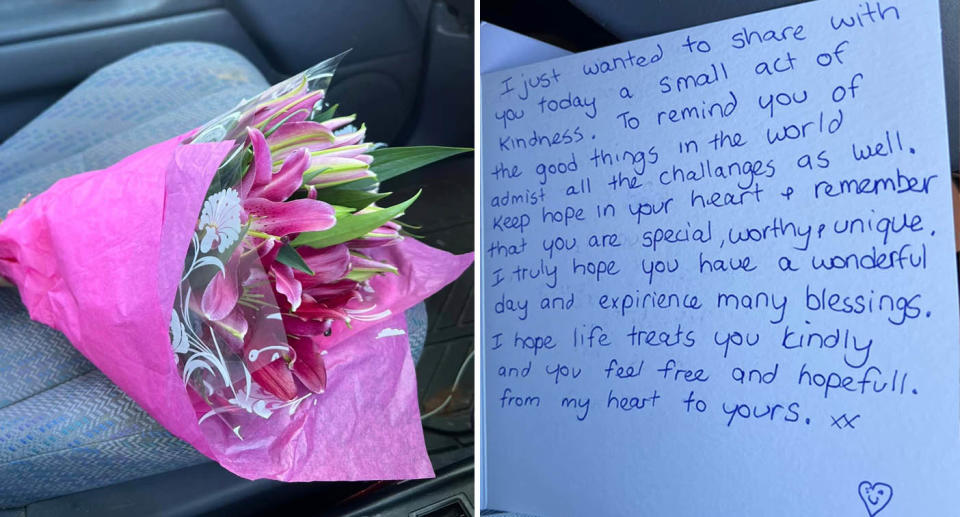 I just wanted to share with
you today a small act of
kindness. To remind you of
the good things in the world
admist all the challanges as well.
Keep hope in your heart & remember
that you are special, worthy & unique.
I truly hope you have a wonderful
day and expirience many blessings.
I hope life treats you kindly
and you feel free and hopefull.
from my heart to yours. xx